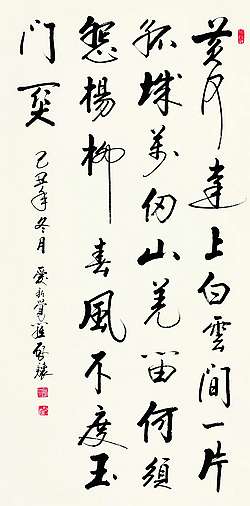 黄河遠上白雲間一片
孤城萬仞山羌笛何須
怨楊柳春風不度玉
門關
己丑年冬月愛新覺羅